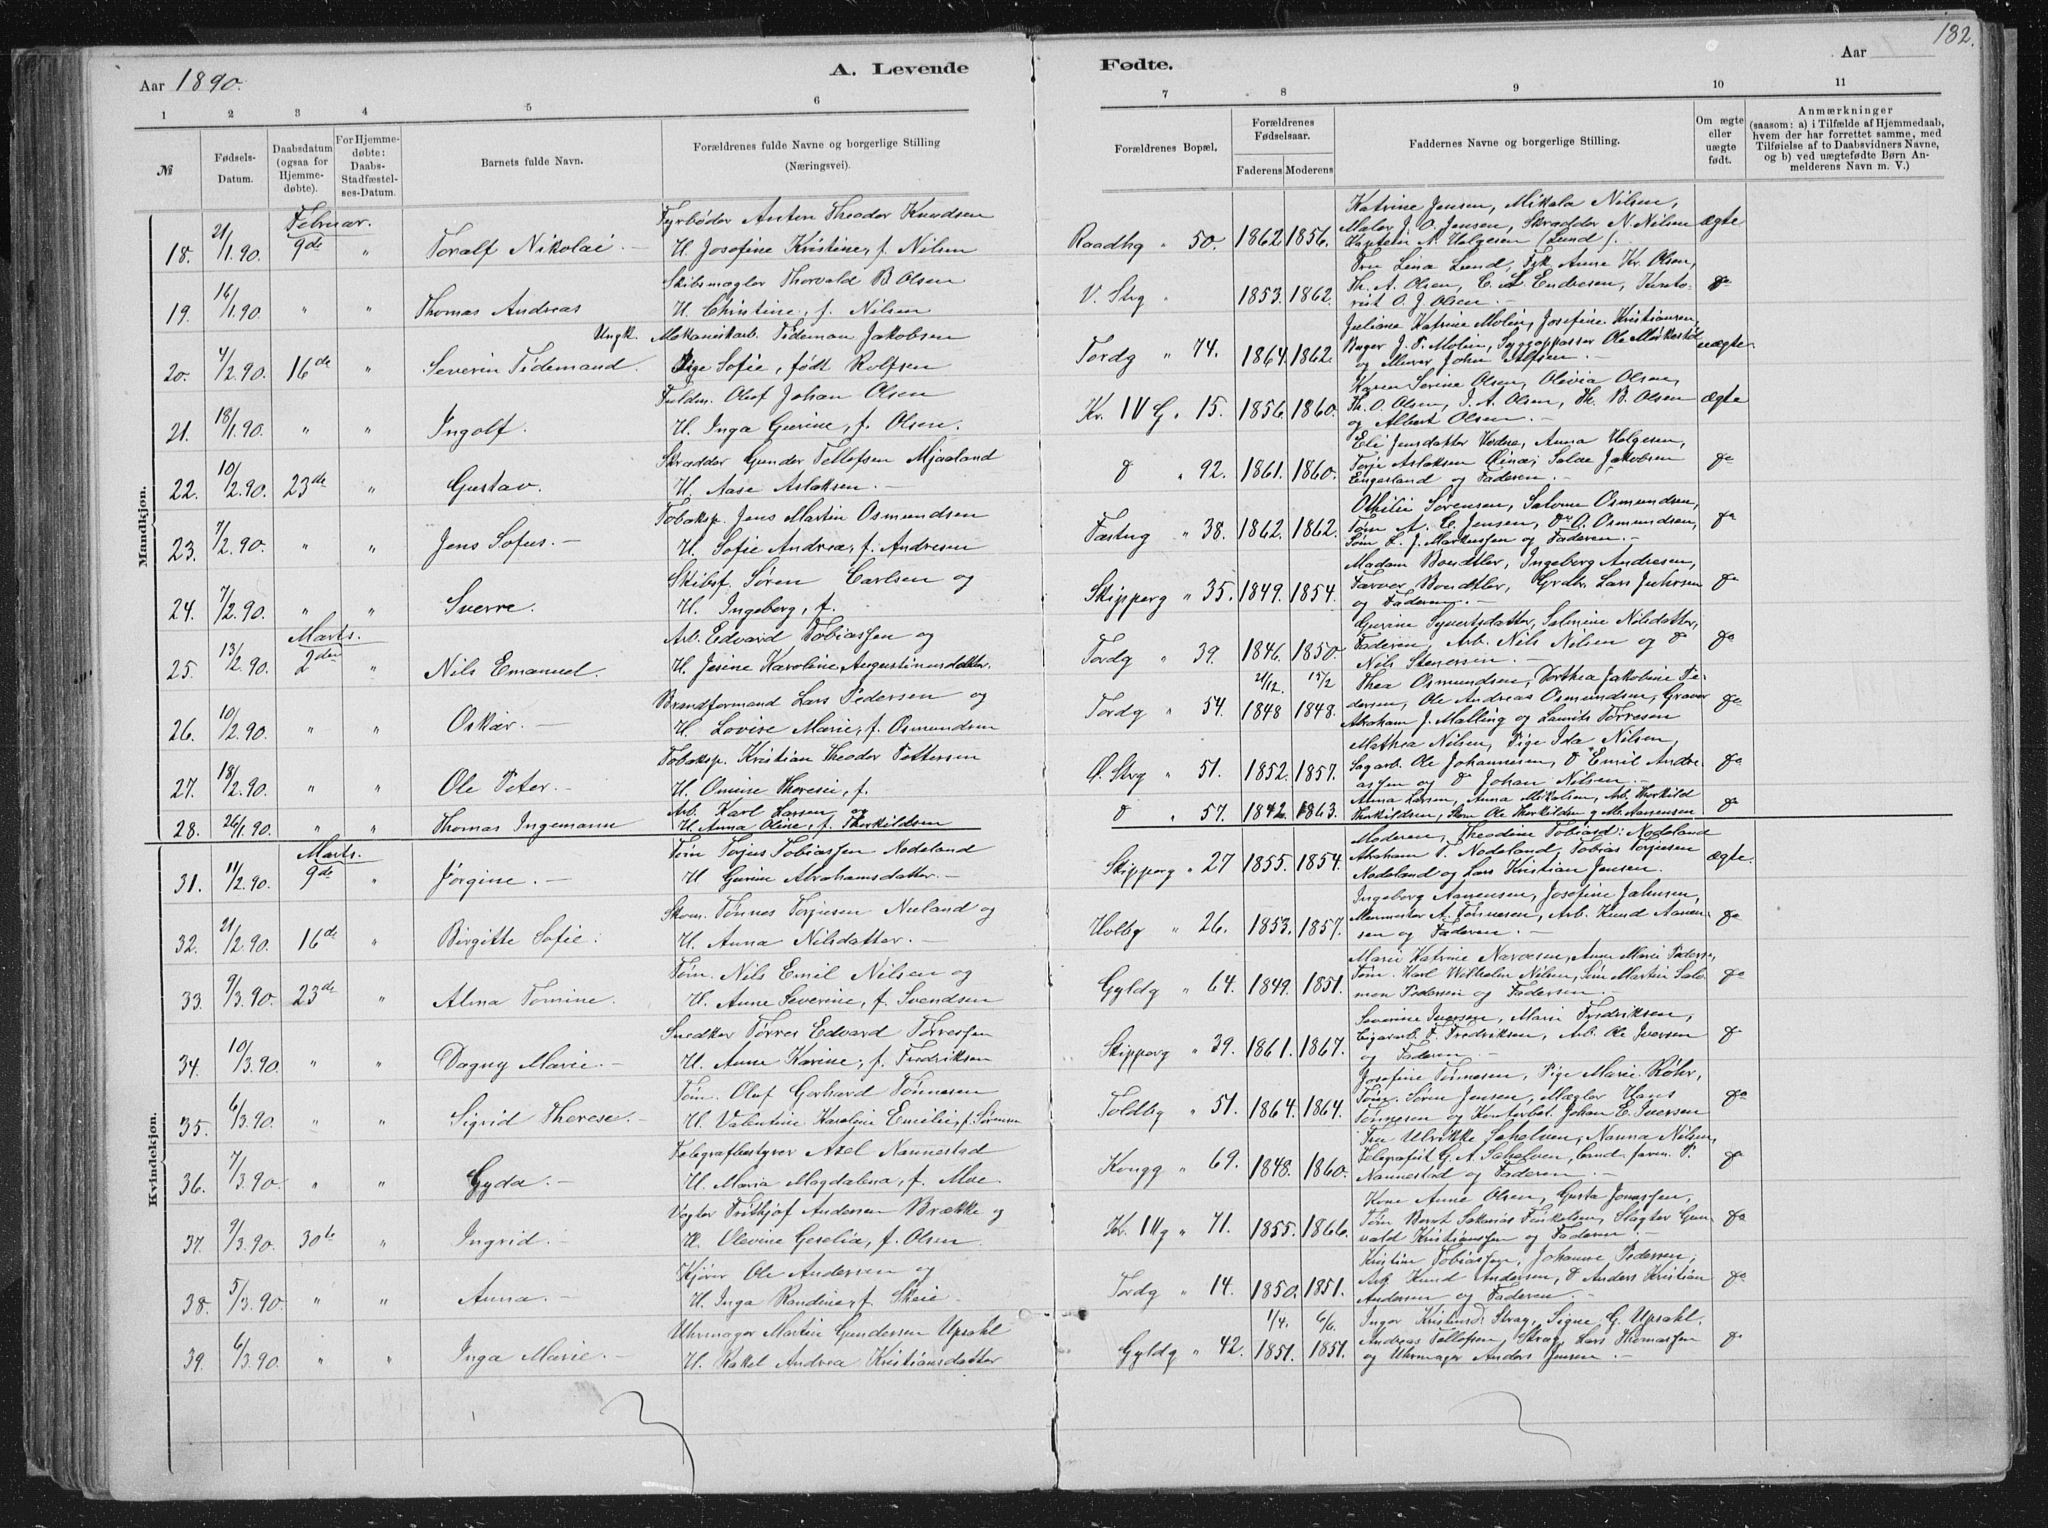 182.
Aar 1890.
A. Levende
Fødte.
Aar
1 2 3 4 5 6 7 8 9 10 11
№
Fødsels-Datum.
Daabsdatum (ogsaa for Hjemmedøbte).
For Hjemmedøbte: Daabs-Stadfæstelses-Datum.
Barnets fulde Navn.
Forældrenes fulde Navne og borgerlige Stilling (Næringsvei).
Forældrenes Bopæl.
Forældrenes Fødselsaar.
Faderens Moderens
Faddernes Navne og borgerlige Stilling.
Om ægte eller uægte født.
Anmærkninger
(saasom: a) i Tilfælde af Hjemmedaab, hvem der har forrettet samme, med Tilføielse af to Daabsvidners Navne, og b) ved uægtefødte Børn Anmelderens Navn m. V.)
Mandkjøn.
Februar.
18. 21/1.90. 9de " Toralf Nikolai. —
Fyrbøder Anton Theodor Knudsen
H. Josefine Kristine, f. Nilsen
Raadhg " 50. 1862 1856.
Katrine Jensen, Mikala Nilsen,
Maler J. O. Jensen, Skrædder N. Nilsen
Kaptein A. Helgesen (Lund).
ægte
19. 16/1.90. " " Thomas Andreas
Skibsmægler Thorvald B Olsen
H. Christine, f. Nilsen
V. Strg " 1853. 1862.
Fru Lina Lund, Frk Anne Kr. Olsen,
Th. A. Olsen, C. A. Endresen, Kontorist O. J. Olsen. —
do
20. 4/2.90. 16de " Severin Tidemand.
Ungk. Mekanikarb. Tideman Jakobsen
Pige Sofie, født Rolfsen
Tordg " 74. 1864. 1862.
Juliane Katrine Molin, Josefine Kristiansen,
Bager J. P. Molin, Sygepasser Ole Mørkestøl
og Murer John Alfsen. —
uægte
21. 18/1.90. " " Ingolf.
Fuldm. Oluf Johan Olsen
H. Inga Gurine, f. Olsen.
Kr. IV G " 15. 1856. 1860.
Karen Serine Olsen, Olivia Olsen,
Th. O. Olsen, J. A. Olsen, Th. B. Olsen
og Albert Olsen. —
ægte
22. 10/2.90. 23de " Gustav.
Skrædder Gunder Tellefsen Mjaaland
H. Aase Aslaksen. —
do " 92. 1861. 1860.
Eli Jensdatter , Anna Helgesen,
Terje Aslaksen , Salve Jakobsen
Eigeland og Faderen. —
do
23. 7/2.90. " " Jens Sofus. —
Tobaksp. Jens Martin Osmundsen
H. Sofie Andrea, f. Andresen
Fæstng " 38. 1862. 1862.
Othilie Sørensen, Salome Osmundsen,
Tøm A. E. Jensen, do O. Osmundsen,
Tøm L. J. Markussen og Faderen. —
do
24. 7/2.90. " " Sverre.
Skibsf. Søren Carlsen og
H. Ingeborg, f.
Skipperg " 35. 1849. 1854.
Madam Bendtler, Ingeborg Andresen,
Farver Bendtler, Grdbr. Lars
og Faderen. —
do
Marts.
25. 13/2.90. 2den " Nils Emanuel.
Arb. Edvard Tobiassen og
H. Jesine Karoline Augustinusdatter.
Tordg " 39. 1846. 1850.
Gurine Syvertsdatter, Salmine Nilsdatter,
Faderen, Arb. Nils Nilsen og do
Nils Stenersen. —
do
26. 10/2.90. " " Oskar. —
Brandformand Lars Pedersen og
H. Lovise Marie, f. Osmundsen
Tordg " 54. 21/12. 1848 15/2 1848.
Thea Osmundsen, Dorthea Jakobine Pedersen, Ole Andreas Osmundsen, Graver
Abraham J. Malling og Laurits Torresen
do
27. 18/2.90. " " Ole Peter. —
Tobaksp. Kristian Theodor Pettersen
H. Omine Therese, f.
Ø. Strg " 51. 1852. 1857.
Mathea Nilsen, Pige Ida Nilsen,
Sagarb. Ole Johannesen, do Emil Andreassen og do Johan Nilsen. —
do
28. 26/1.90. " " Thomas Ingemann
Arb. Karl Larsen og
H. Anna Oline, f. Thorkildsen
do " 57. 1842. 1863.
Anna Larsen, Anna Mikalsen, Arb. Thorkild
Thorkildsen, Skom Ole Thorkildsen og M. Aanensen
do
Kvindekjøn.
Marts.
31. 11/2.90. 9de " Jørgine. —
Tøm Torjus Tobiassen Nodeland
H. Gurine Abrahamsdatter. —
Skipperg " 27 1855. 1854.
Moderen, Theodine Tobiasd: Nodeland
Abraham T. Nodeland, Tobias Torjusen
Nodeland og Lars Kristian Jensen.
ægte.
32. 21/2.90. 16de " Birgitte Sofie.
Skom. Tønnes Torjusen Nuland og
H. Anna Nilsdatter. —
Holbg " 26. 1853. 1857.
Ingeborg Aanensen, Josefine Jahnsen,
A. Tønnesen, Arb. Knud Aanensen og Faderen. —
do
33. 9/3.90. 23de " Alma Tomine.
Tøm. Nils Emil Nilsen og
H. Anne Severine, f. Svendsen
Gyldg " 64. 1849. 1851.
Marie Katrine Narvesen, Anne Marie Pedersen,
Tøm. Karl Wilhelm Nilsen, Søm Martin Salomon Pedersen og Faderen. —
do
34. 10/3.90. " " Dagny Marie. —
Snedker Tørres Edvard Tørressen
H. Anne Karine, f. Fredriksen
Skipperg " 39. 1861. 1867.
Severine Iversen, Marie Fredriksen,
Cigararb. F. Fredriksen, Arb. Ole Iversen
og Faderen. —
do
35. 6/3.90. " " Sigrid Therese. —
Tøm. Oluf Gerhard Tønnesen
H. Valentine Karoline Emilie, f. Sørensen
Toldbg " 51. 1864. 1864.
Josefine Tønnesen, Pige Marie Rohr,
Tøm. Søren Jensen, Mægler Hans
Tønnesen og Kontorbet. Johan E. Iversen
do
36. 7/3.90. " " Gyda. —
Telegrafbestyrer Axel Nannestad
H. Maria Magdalena, f. Moe.
Kongg " 69. 1848. 1860.
Fru Ulrikke Scheluen, Nanna Nilsen,
Telegrafist G. A. Scheluen, P.
Nannestad og Faderen. —
do
37. 9/3.90. 30te " Ingrid. —
Vogter Frithjof Andersen Brække og
H. Olevine Geselia, f. Olsen.
Kr. IVg " 71. 1855. 1866.
Kone Anne Olsen, Gusta Jonassen,
Tøm Bernt Sakarias Finkelsen, Slagter Gunvald Kristiansen og Faderen. —
do
38. 5/3.90. " " Anna. —
Kjører Ole Andersen og
H. Inga Randine, f. Skeie
Tordg " 14. 1850. 1851.
Kristine Tobiassen, Johanne Pedersen,
Arb. Knud Andersen, do Anders Kristian
Andersen og Faderen. —
do
39. 6/3.90. " " Inga Marie. —
Uhrmager Martin Gundersen Upsahl
H. Rakel Andrea Kristiansdatter
Gyldg " 42. 1/4. 1851. 6/6. 1851.
Inger Kristine Strag, Signe G. Upsahl,
Andreas Tellefsen, Strag, Lars Thomassen
og Uhrmager Anders Jensen. —
do